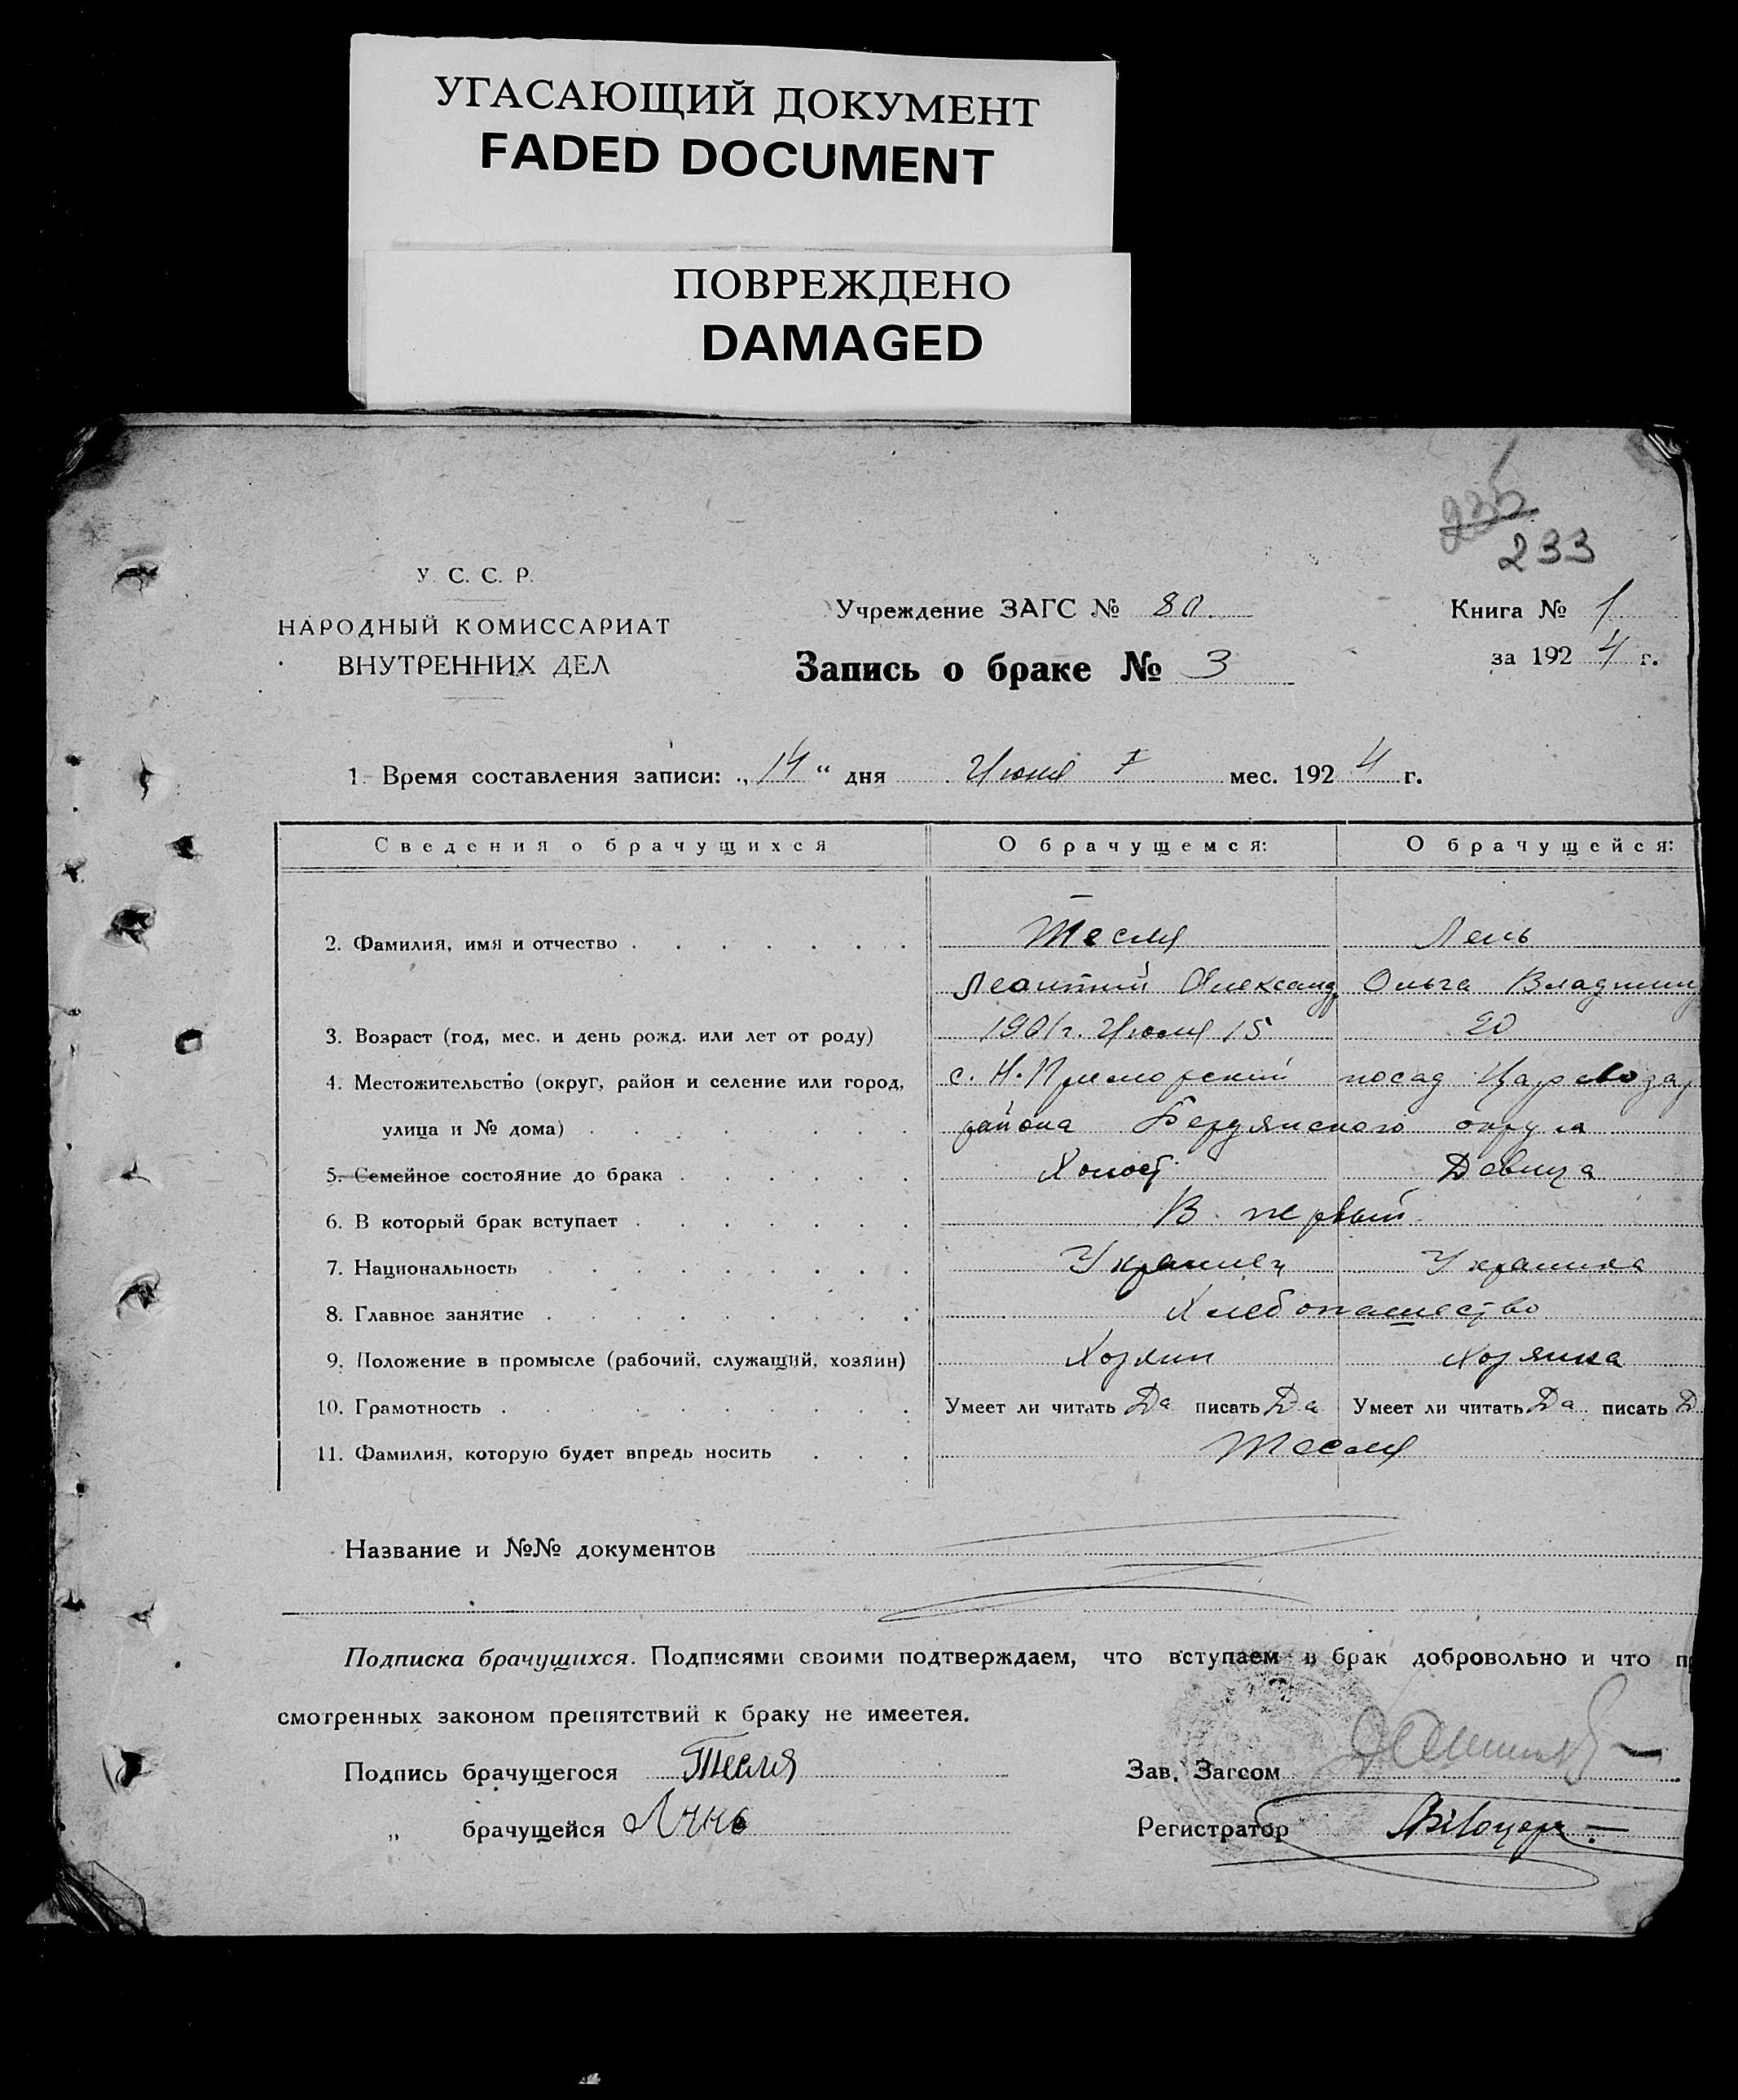 УГАСАЮЩИЙ ДОКУМЕНТ
FADED DOCUMENT
ПОВРЕЖДЕНО
DAMAGED
235
233
У. С. С. Р.
НАРОДНЫЙ КОМИССАРИАТ
ВНУТРЕННИХ ДЕЛ
Учреждение ЗАГС № 80
Книга № 1
за 1924 г.
Запись о браке № 3
1. Время составления записи: „14“ дня Июля 7 мес. 1924 г.
Сведения о брачущихся О брачущемся: О брачущейся:
2. Фамилия, имя и отчество Тесля Лень
Леонтий Александр Ольга Владимир
3. Возраст (год, мес. и день рожд. или лет от роду) 1901 г. Июля 15 20
4. Местожительство (округ, район и селение или город, с. Н. Приморский посад Царевозар
улица и № дома) района Бердянского округа
5. Семейное состояние до брака Холост Девица
6. В который брак вступает В первый
7. Национальность Украинец Украинка
8. Главное занятие Хлебопашество
9. Положение в промысле (рабочий, служащий, хозяин) Хозяин Хозяйка
10. Грамотность Умеет ли читать Да писать Да Умеет ли читать Да писать Д
11. Фамилия, которую будет впредь носить Тесля
Название и №№ документов
Подписка брачущихся. Подписями своими подтверждаем, что вступаем в брак добровольно и что пр
смотренных законом препятствий к браку не имеется.
Подпись брачущегося Тесля
Зав. Загсом
„ брачущейся Лень
Регистратор